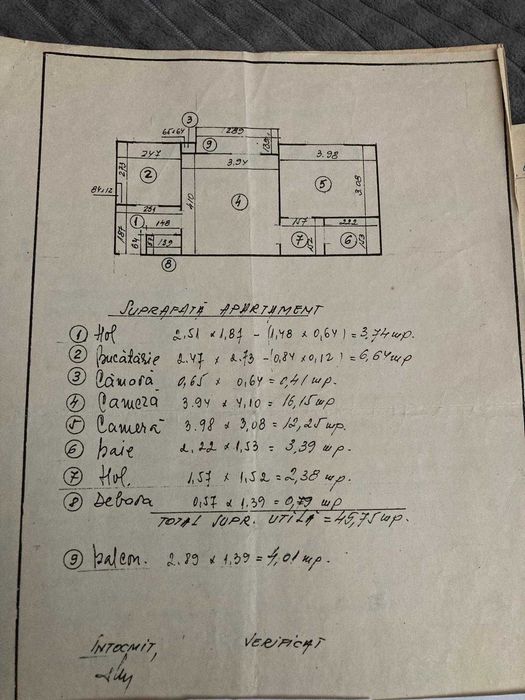 3
65x64
2.89
9
1.39
2.47
3.94
3.98
2.73
2
84x12
4.10
4
5
3.08
2.51
1
1.48
1.87
64
57
1.39
8
1.57
7
1.52
2.22
6
1.53
SUPRAFAȚĂ APARTAMENT
1 Hol 2.51 x 1.87 - (1,48 x 0,64) = 3,74 mp.
2 Bucătărie 2.47 x 2.73 - (0,84 x 0,12) = 6,64 mp
3 Cămară 0,65 x 0,64 = 0,41 mp.
4 Cameră 3.94 x 4,10 = 16,15 mp
5 Cameră 3.98 x 3,08 = 12,25 mp.
6 Baie 2.22 x 1,53 = 3,39 mp.
7 Hol. 1,57 x 1,52 = 2,38 mp.
8 Debara 0,57 x 1.39 = 0,79 mp
TOTAL SUPR. UTILĂ = 45,75 mp.
9 Balcon. 2.89 x 1,39 = 4,01 mp.
ÎNTOCMIT, VERIFICAT